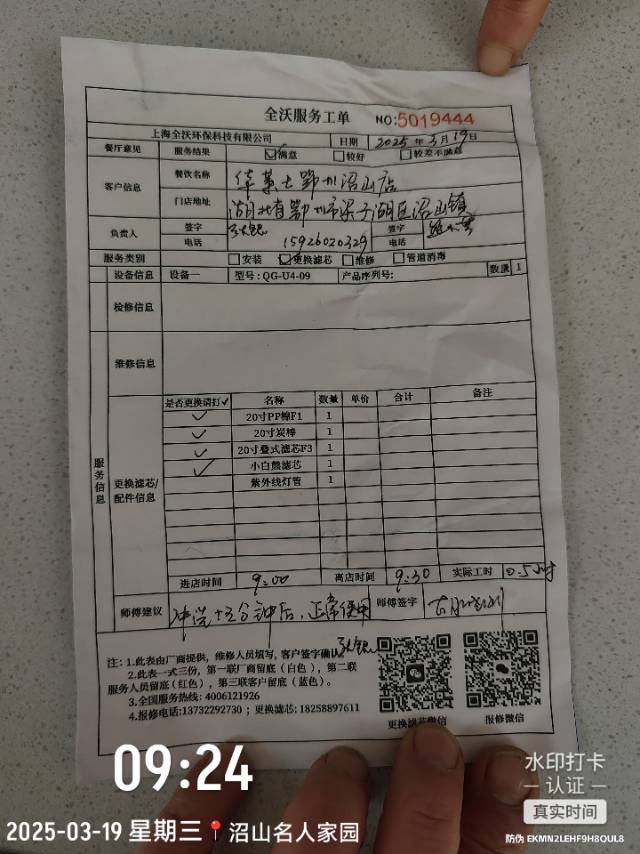 全沃服务工单 NO:5019444
上海全沃环保科技有限公司 日期 2025年3月19日
餐厅意见 服务结果 ☑满意 □较好 □较差不满意
客户信息 餐饮名称 华莱士鄂州沼山店
门店地址 湖北省鄂州市梁子湖区沼山镇
负责人 签字 签字
电话 15926020329 电话
服务类别 □安装 ☑更换滤芯 □维修 □管道消毒
设备信息 设备一 型号:QG-U4-09 产品序列号: 数量 1
检修信息
维修信息
服务信息
更换滤芯/配件信息
是否更换请打✓ 名称 数量 单价 合计 备注
✓ 20寸PP棉F1 1
✓ 20寸炭棒 1
✓ 20寸叠式滤芯F3 1
✓ 小白熊滤芯 1
紫外线灯管 1
进店时间 9:00 离店时间 9:30 实际工时 0.5小时
师傅建议 冲洗十五分钟后,正常使用 师傅签字
注:1.此表由厂商提供,维修人员填写,客户签字确认
2.此表一式三份,第一联厂商留底(白色),第二联
服务人员留底(红色),第三联客户留底(蓝色)。
3.全国服务热线:4006121926
4.报修电话:13732292730;更换滤芯:18258897611
更换滤芯微信 报修微信
09:24
2025-03-19 星期三 沼山名人家园
水印打卡
认证
真实时间
防伪 EKMN2LEHF9H8QUL8